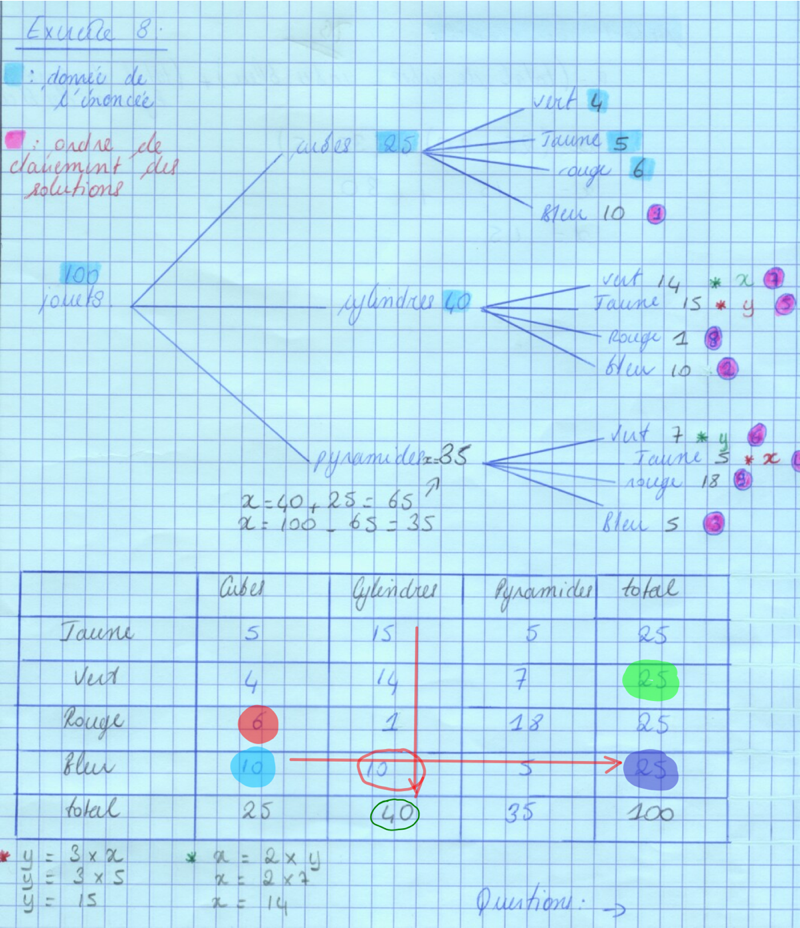 Exercice 8:
: donnée de
l'énoncée
: ordre de
classement des
solutions
100
jouets
cubes 25
vert 4
Jaune 5
rouge 6
Bleu 10 1
cylindres 40
vert 14 * x 7
Jaune 15 * y 5
Rouge 1 8
bleu 10 2
pyramides x=35
vert 7 * y 6
Jaune 5 * x
rouge 18 9
Bleu 5 3
x = 40 + 25 = 65
x = 100 - 65 = 35
Cubes Cylindres Pyramides total
Jaune 5 15 5 25
Vert 4 14 7 25
Rouge 6 1 18 25
Bleu 10 10 5 25
total 25 40 35 100
* y = 3 x x * x = 2 x y
y = 3 x 5 x = 2 x 7
y = 15 x = 14
Questions: →